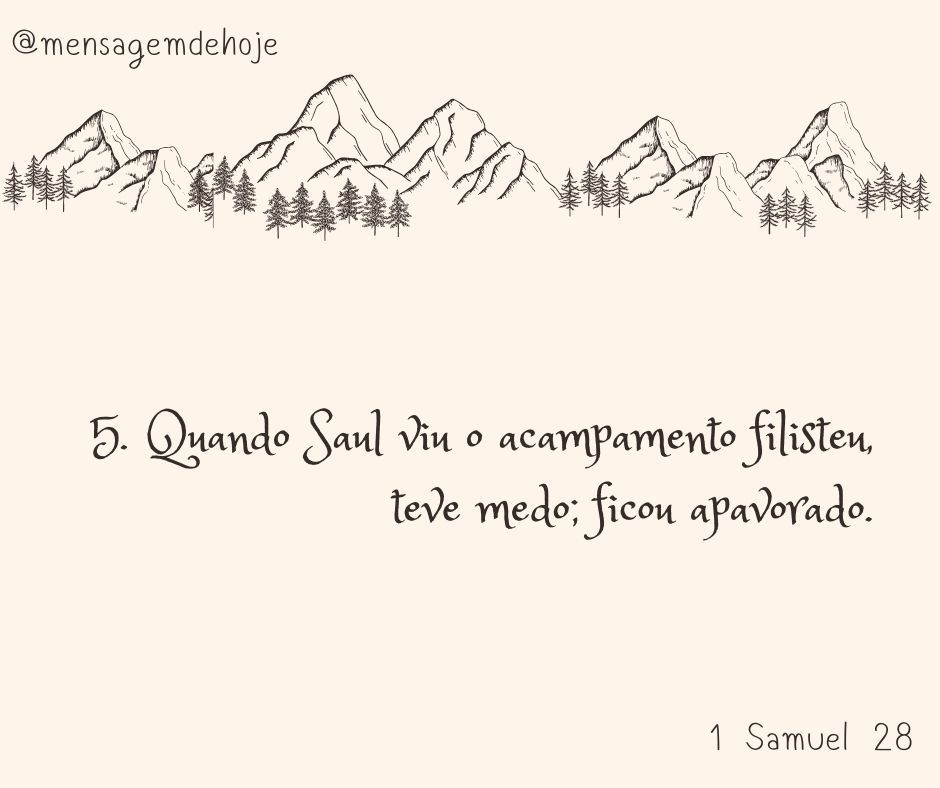 @mensagemdehoje
5. Quando Saul viu o acampamento filisteu,
teve medo; ficou apavorado.
1 Samuel 28